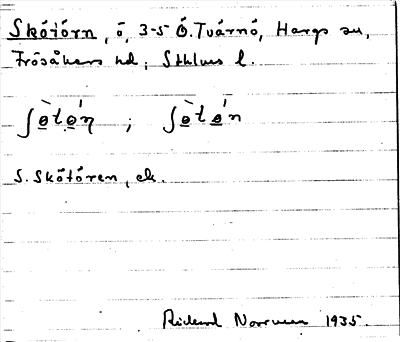 Skötörn, ö, 3-5 Ö. Tvärnö, Hargs sn,
Frösåkers hd; Sthlms l.
ʃø̀tǿη ; ʃø̀tǿn
S. Skötören, ek.
Rickard Norrman 1935.